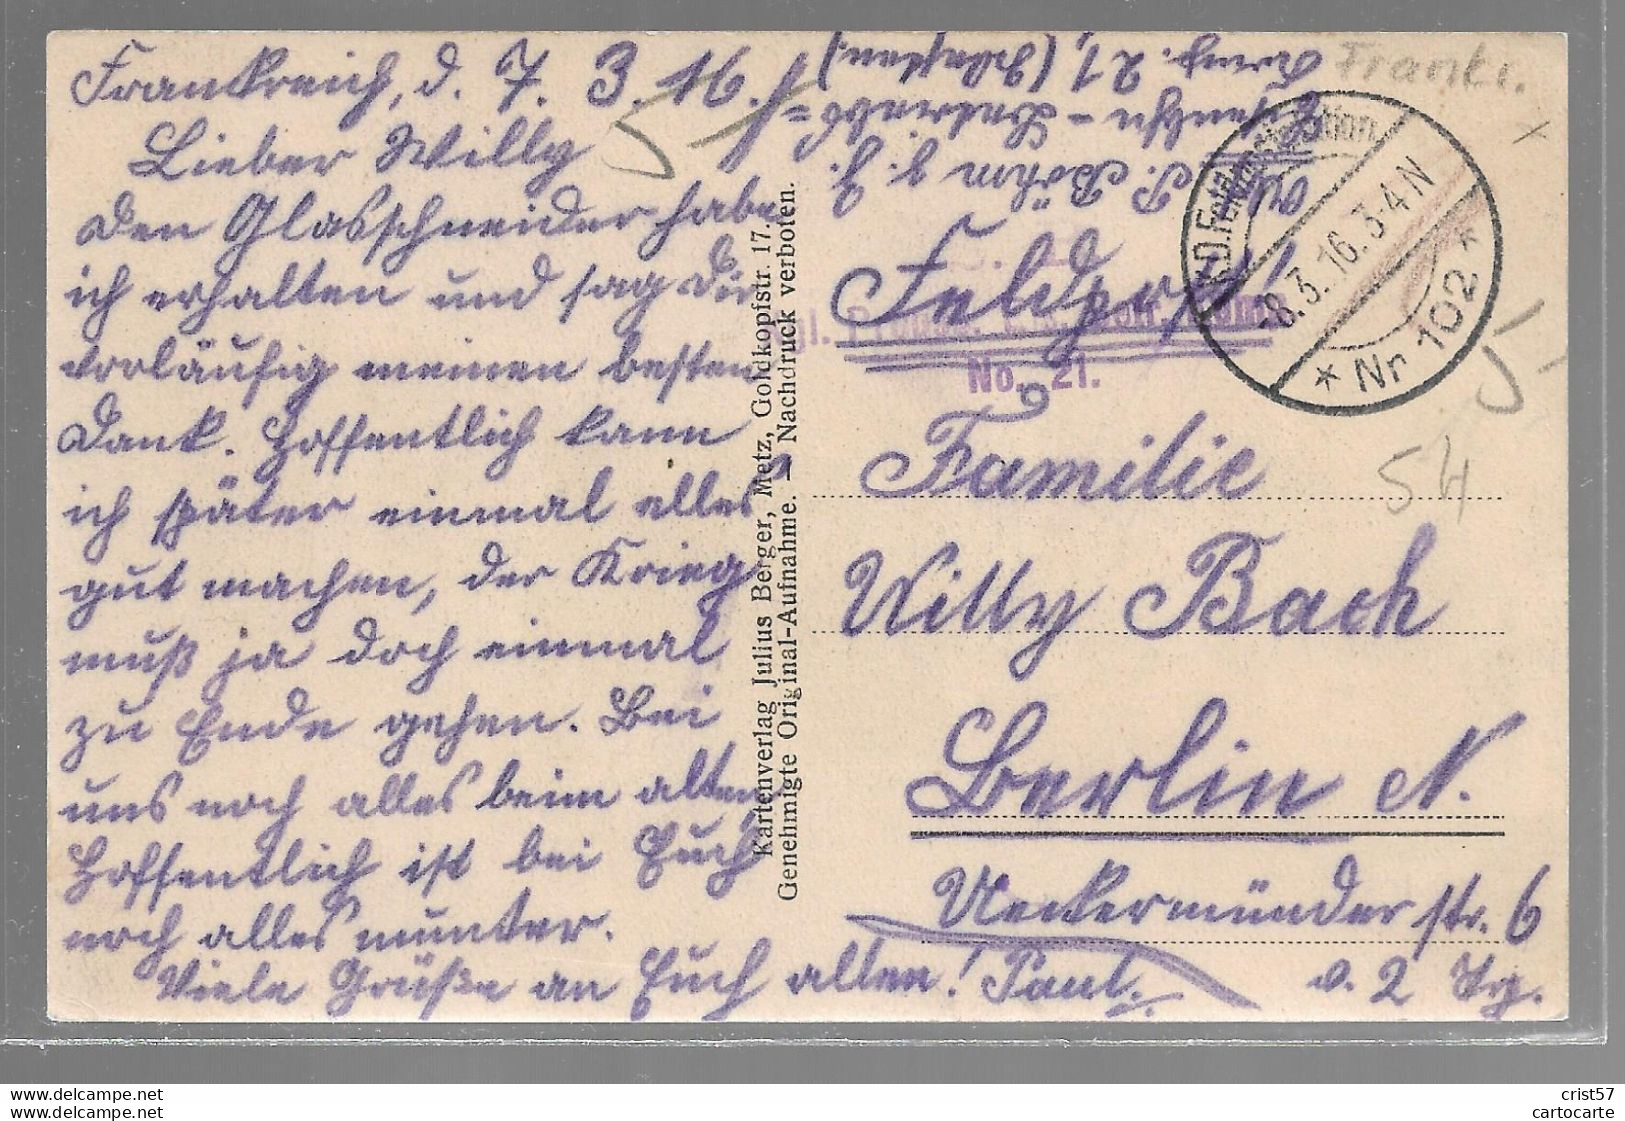 Frankreich, d. 7. 3. 16.
Lieber Willy
Den Glasschneider habe
ich erhalten und sag Dir
vorläufig meinen besten
Dank. Hoffentlich kann
ich später einmal alles
gut machen, der Krieg
muß ja doch einmal
zu Ende gehen. Bei
uns noch alles beim alten
Hoffentlich ist bei Euch
noch alles munter.
Viele Grüße an Euch allen! Paul.
Kartenverlag Julius Berger, Metz, Goldkopfstr. 17.
Genehmigte Original-Aufnahme. — Nachdruck verboten.
P. Böhm
21
Frankr.
K.D. Feldpoststation
8.3.16. 3-4 N
* Nr 102 *
Feldpost!
No. 21.
54
Familie
Willy Bach
Berlin N.
Ueckermünder str. 6
v. 2 Trp.
crist57
cartocarte
delcampe.net
delcampe.net